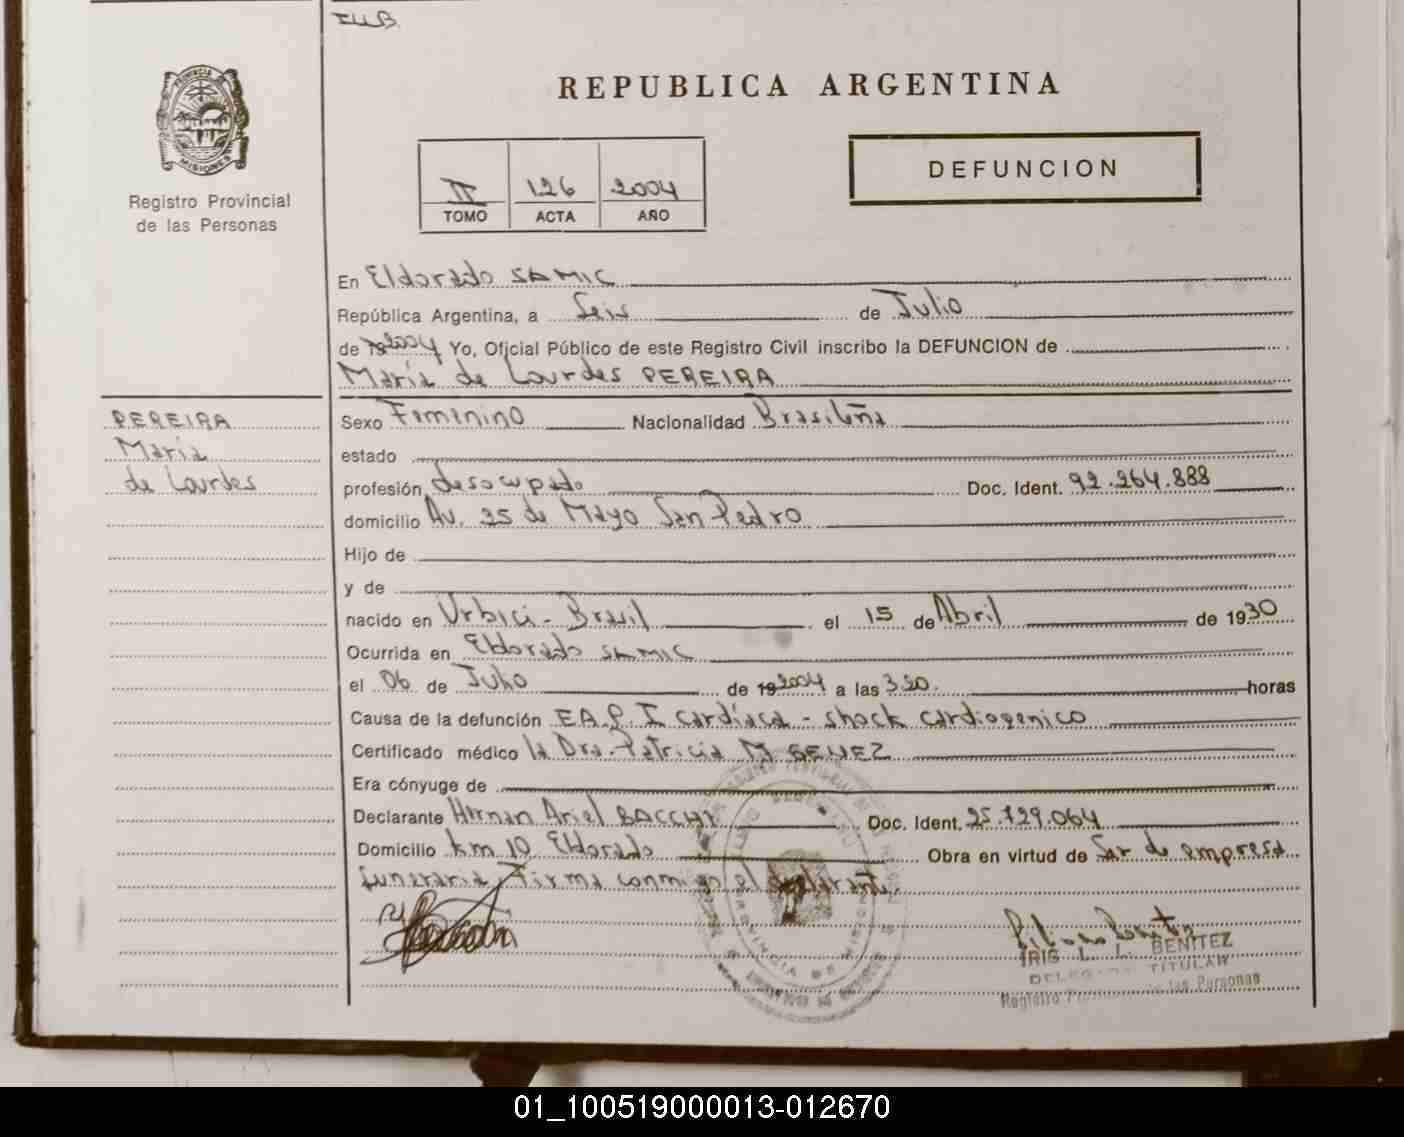 REPUBLICA ARGENTINA
PROVINCIA DE
MISIONES
Registro Provincial
de las Personas
II 126 2004
TOMO ACTA AÑO
DEFUNCION
En Eldorado SAMIC
República Argentina, a Seis de Julio
de 2004 Yo, Oficial Público de este Registro Civil inscribo la DEFUNCION de
María de Lourdes PEREIRA
PEREIRA
María
de Lourdes
Sexo Femenino Nacionalidad Brasileña
estado
profesión desocupado Doc. Ident. 92.264.888
domicilio Av. 25 de Mayo San Pedro
Hijo de
y de
nacido en Urbici - Brasil el 15 de Abril de 1930
Ocurrida en Eldorado SAMIC
el 06 de Julio de 19 2004 a las 3 20. horas
Causa de la defunción E.A.P. I cardíaca - shock cardiogenico
Certificado médico la Dra. Patricia M
Era cónyuge de
Declarante Hernan Ariel BACCHI Doc. Ident. 25.729.064
Domicilio km 10 Eldorado Obra en virtud de Ser de empresa
funeraria, Firma conmigo el declarante.
IRIS L. L. BENITEZ
TITULAR
Registro las Personas
01_100519000013-012670